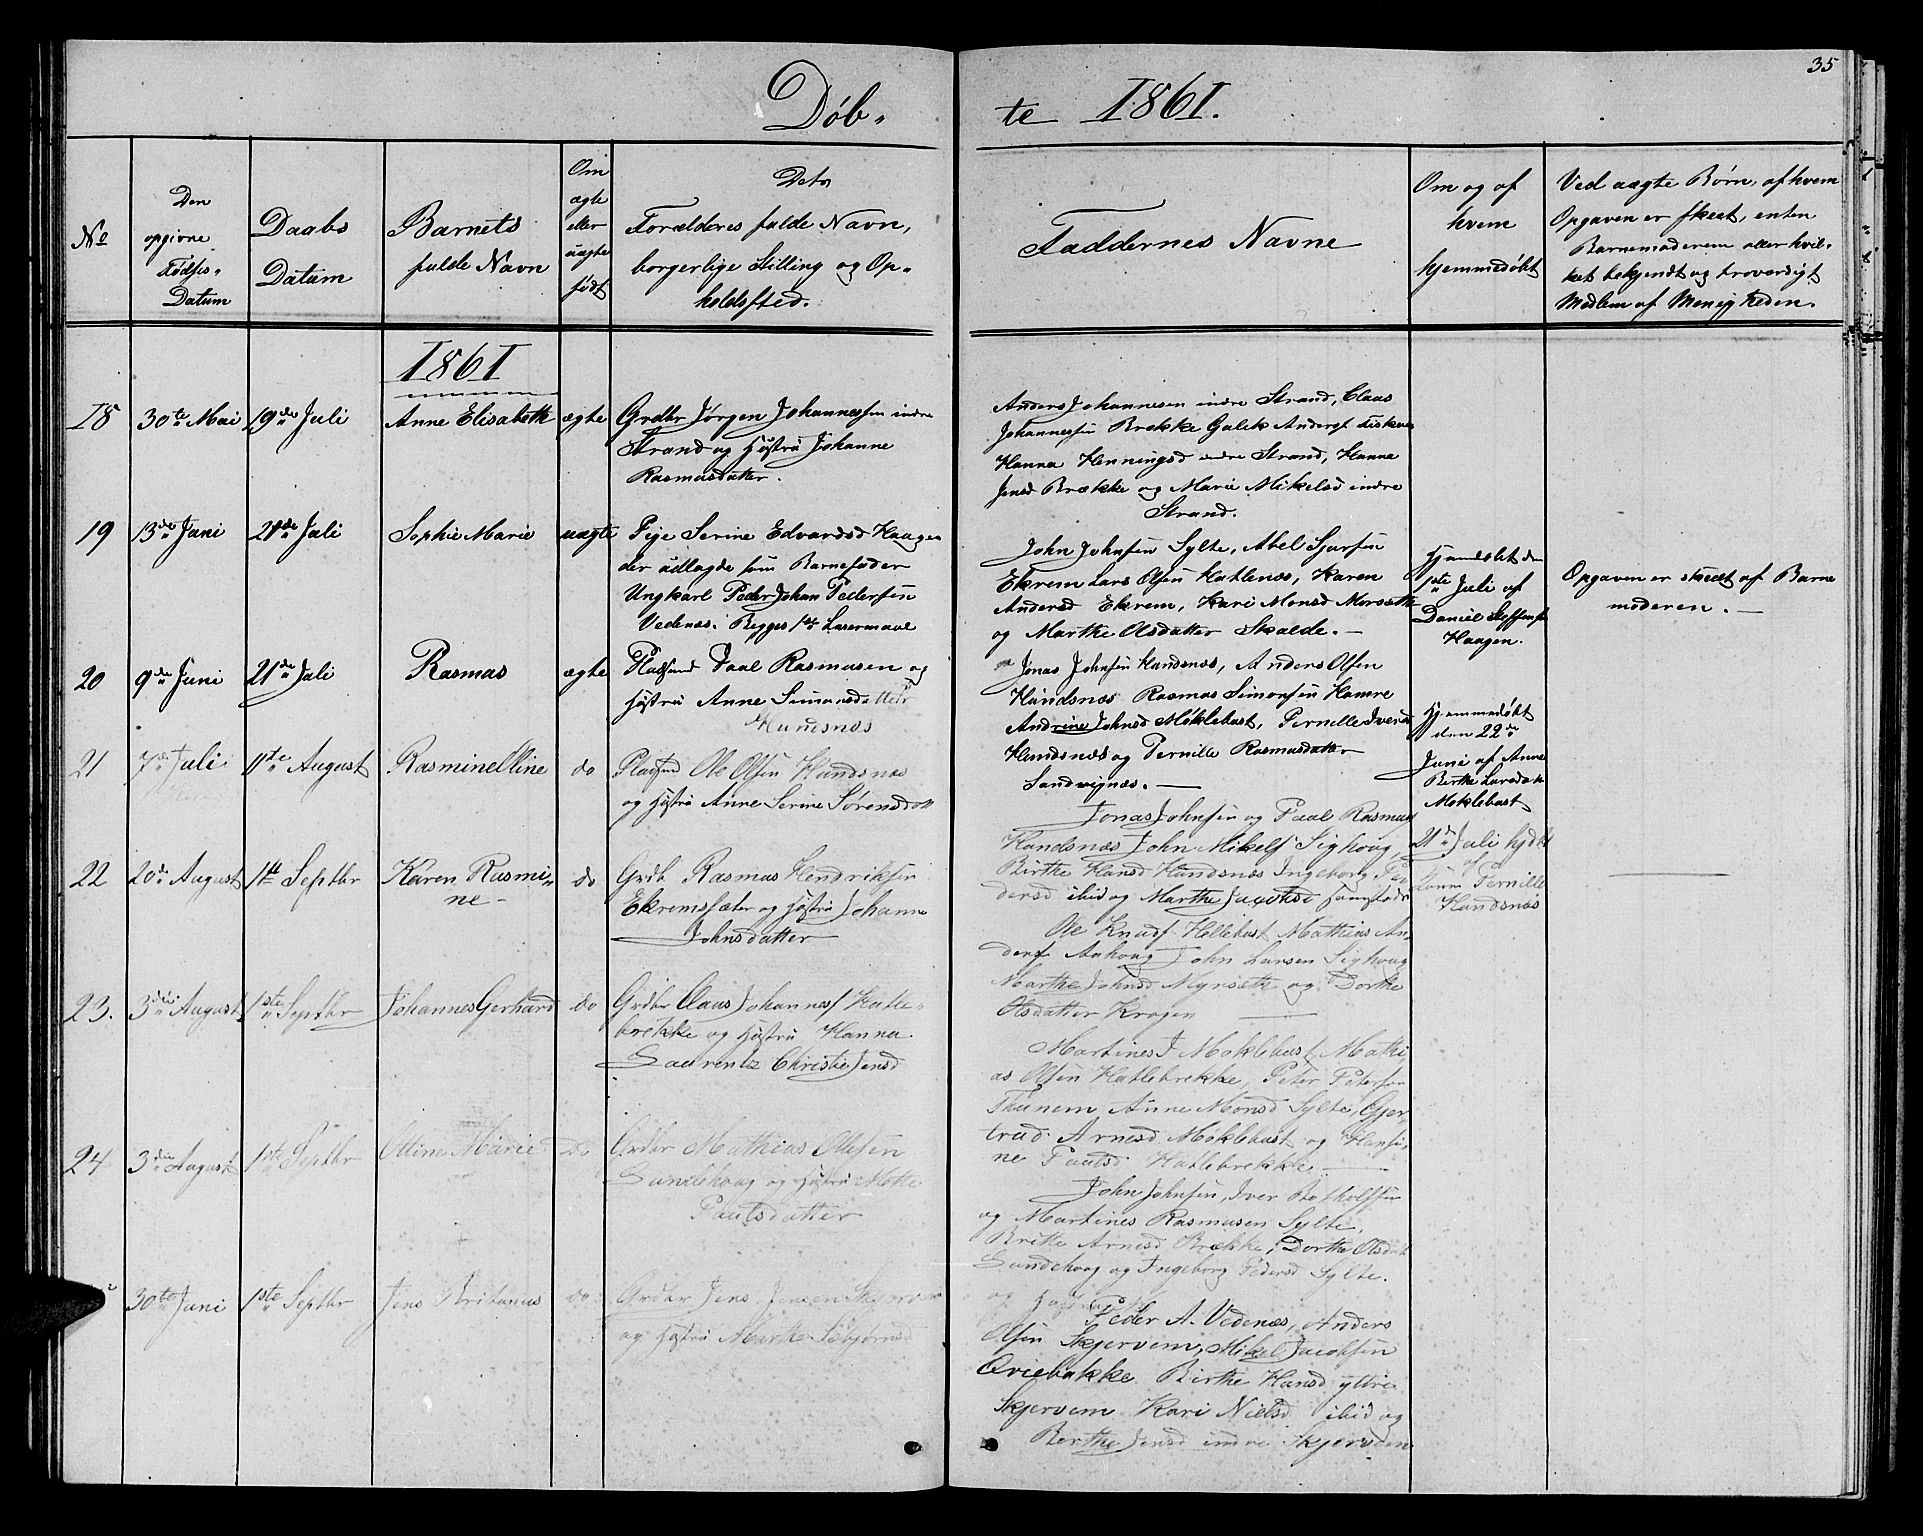 35
Døb-
te 1861.
No
Den
opgivne
Fødsels-
Datum
Daabs
Datum
Barnets
fulde Navn
Om
ægte
eller
uægte
født
Dets
Forældres fulde Navn,
borgerlige Stilling og Op-
holdssted.
Faddernes Navne
Om og af
hvem
hjemmedøbt
Ved uægte Børn, af hvem
Opgaven er skeet, enten
Barnemoderen eller hvil-
ket bekjendt og troværdigt
Medlem af Menigheden.
1861
18
30te Mai
19de Juli
Anne Elisabeth
ægte
Grdbr Jørgen Johannessen indre
Strand og Hustru Johanne
Rasmusdatter.
Anders Johannesen indre Strand, Claas
Johannessen Brekke Galek Anders
Hanna Henningsd indre Strand, Hanna
Jensd Brække og Marie Mikelsd indre
Strand.
19
13de Juni
21de Juli
Sophie Marie
uægte
Pige Serine Edvardsd Haagen
der udlagde som Barnefader
Ungkarl Peder Johan Pedersen
Vedenæs. Begges 1ste Leiermaal
John Johnsen Sylte, Abel Sjursen
Ekrem Lars Olsen Hatlenæs, Karen
Andersd Ekrem, Kari Monsd Morsæth
og Marthe Olsdatter Skalde.
Hjemdøbt den
1ste Juli af
Daniel Steffens
Haagen.
Opgaven er skeet af Barne
moderen.
20
9de Juni
21de Juli
Rasmus
ægte
Pladsmd Paal Rasmusen og
Hustru Anne Simonsdatter
Hundsnæs
Jonas Johnsen Hundsnæs, Anders Olsen
Hundsnæs Rasmus Simonsen Hamre
Andrine Johnsd Møklebust, Pernille Iversd
Hundsnæs og Pernille Rasmusdatter
Sandvignæs.
Hjemmedøbt
den 22de
Juni af Anne
Birthe Larsdatt
Møklebust
21
7de Juli
11te August
Rasminelline
do
Pladsmd Ole Olsen Hundsnæs
og Hustru Anne Serine Sørensdatt
Jonas Johnsen og Paal Rasmus
Hundsnæs John Mikels Sighoug,
Birthe Hansd Hundsnæs Ingeborg Pe
dersd ibid og Marthe Jacobsd
21de Juli hjdbt
af
Pernille
Hundsnæs
22
20de August
1ste Septbr
Karen Rasmi-
ne
do
Grdbr Rasmus Hendriksen
Ekremsæter og Hustru Johanne
Johnsdatter
Ole Knuds Hellebust Mathias An-
ders Aahoug John Larsen Sighoug
Marthe Johnsd Myrsæth og Dorthe
Olsdatter Krogen
23.
3die August
1ste Septbr
Johannes Gerhard
do
Grdbr Claus Johannes Hatle-
brekke og Hustru Hanna
Laurentz Christie Jensd
Martines J Møklebust Mathi-
as Olsen Hatlebrekke, Peter Petersen
Thunem, Anne Monsd Sylte, Gjer-
trud Arnesd Møklebust og Hansi-
ne Paulsd Hatlebrekke.
24
3die August
1ste Septbr
Oline Marie
do
Grdbr Mathias Olesen
Sundehoug og Hustru Mette
Paulsdatter
John Johnsen, Iver Botholfsen
og Martines Rasmusen Sylte,
Brithe Arnesd Brække, Dorthe Olsdat
Sundehoug og Ingeborg Pedersd Sylte.
30te Juni
1ste Septbr
Jens Britanus
do
Grdbr Jens Jensen Skjervem
og Hustru Marthe Esbjørnsd
og
Peder A. Vedenæs, Anders
Olsen Skjervem, Mikel Jacobsen
Qviebakke Birthe Hansd ydtre
Skjervem Kari Nielsd ibid og
Berthe Jensd indre Skjervem